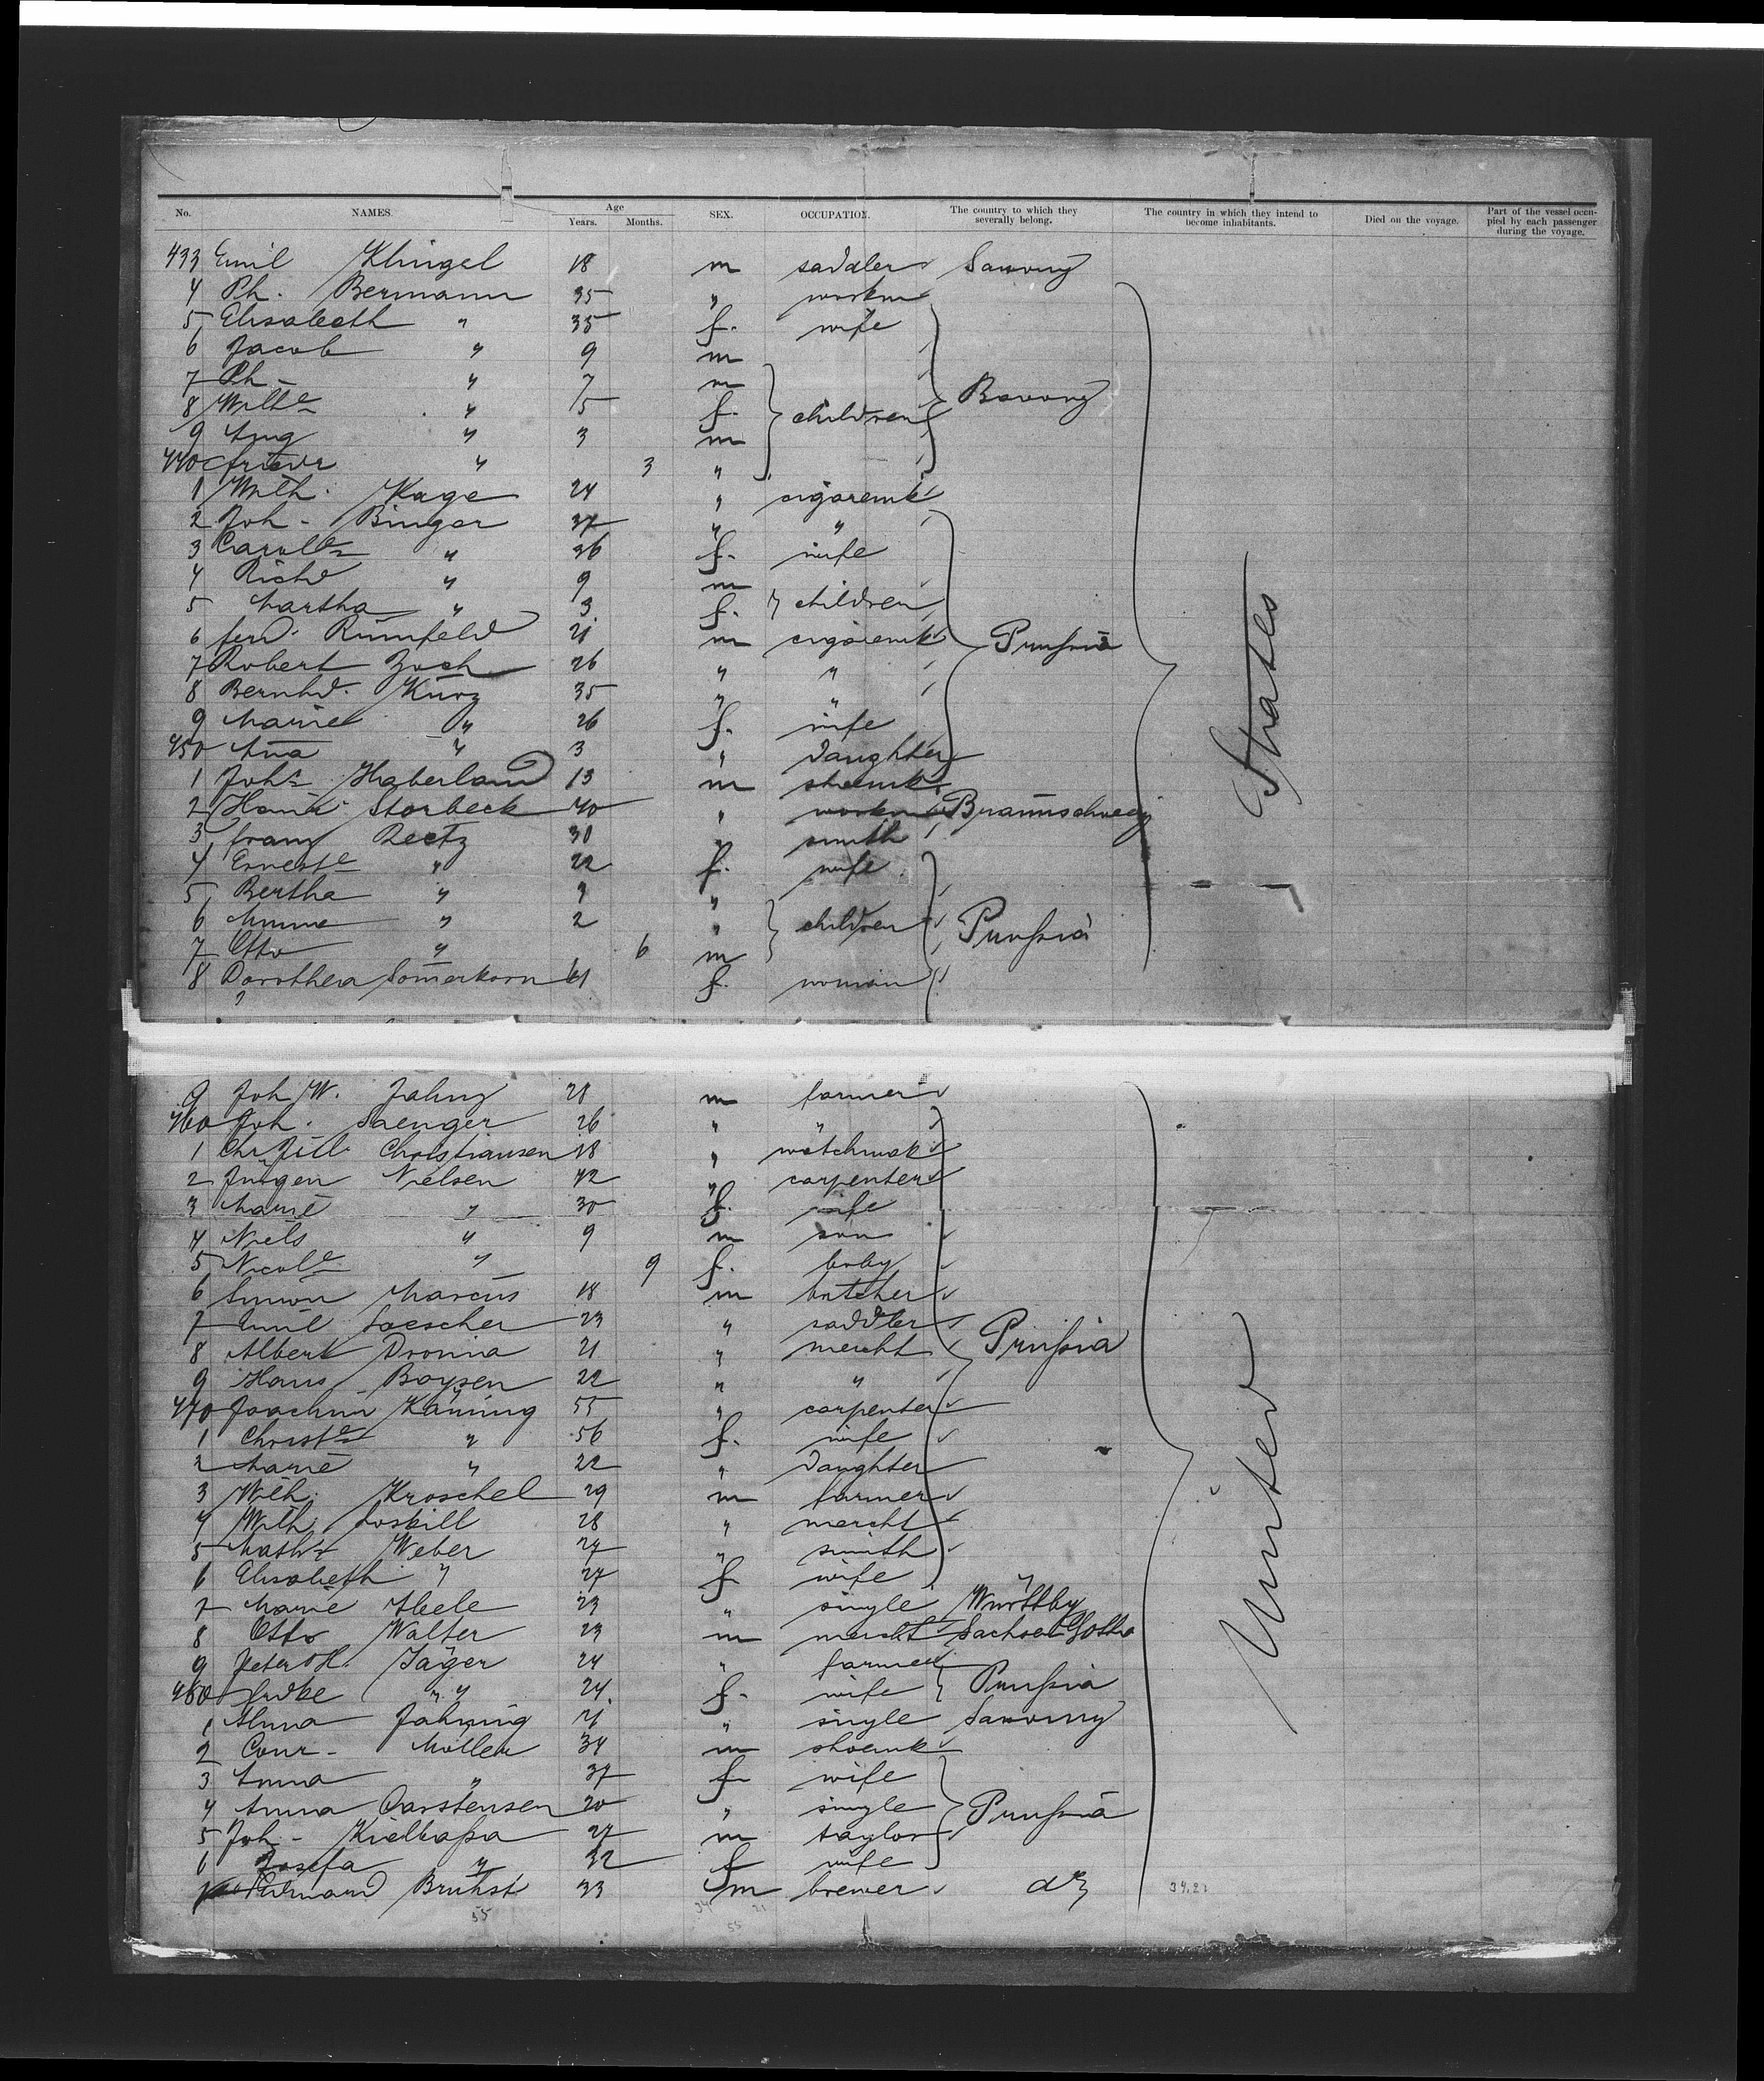 No. NAMES. Age Years. Months. SEX. OCCUPATION. The country to which they severally belong. The country in which they intend to become inhabitants. Died on the voyage. Part of the vessel occupied by each passenger during the voyage.
433 Emil Klingel 18 m saddler Saxony
4 Ph. Bermann 35 " workm
5 Elisabeth " 35 f. wife
6 Jacob " 9 m
7 Ph - " 7 m
8 Wilhe " 5 f. children Bavony
9 Aug " 3 m
440 Friedr " 3 "
1 Wilh. Kage 24 " cigaremk
2 Joh - Binger 37 " "
3 Carole " 36 f. wife
4 Richd " 9 m
5 Martha " 3 f. children
6 Ferd. Rumfeld 21 m cigaremk Prussia
7 Robert Zoch 26 " "
8 Bernhd. Kurz 35 " "
9 Marie " 26 f. wife
450 Ana " 3 " daughter
1 Johs Haberland 13 m shoemk
2 Storbeck 40 " workm Braunschweig
3 Franz Reetz 30 " smith
4 Erneste " 22 f. wife
5 Bertha " "
6 " 2 " children Prussia
7 Otto " 6 m
8 Dorothea Somerkorn 61 f. woman
9 Joh W. Jahnz 28 m farmer
460 Joh. Saenger 26 "
1 Christiansen 18 " watchmak
2 Jürgen Nielsen 42 " carpenter
3 Marie " 30 f. wife
4 Niels " 9 m son
5 Nicole " 9 f. baby
6 Simon Marcus 18 m butcher
7 Emil Loescher 23 " saddler
8 Albert Dronia 21 " mercht Prussia
9 Hans Boysen 22 " "
470 Joachim Käning 55 " carpenter
1 Christe " 56 f. wife
2 Marie " 22 " daughter
3 Wilh. Kroschel 29 m farmer
4 Wilh. Loskill 28 " mercht
5 Mathr Weber 27 " smith
6 Elisabeth " 27 f wife
7 Marie Abele 23 " single Württbg
8 Otto Walter 23 m mercht Sachsen Gotha
9 Peter H. Jäger 24 " farmer
480 " " 24 f. wife Prussia
1 Anna Jahning 21 " single Saxony
2 Conr - Möller 34 m shoemk
3 Anna " 37 f wife
4 Anna Carstensen 20 " single Prussia
5 Joh - Kielkassa 27 m taylor
6 Josefa " 32 f wife
7 Bruhst 33 m brewer do
United States
55
34
21
55
34.21